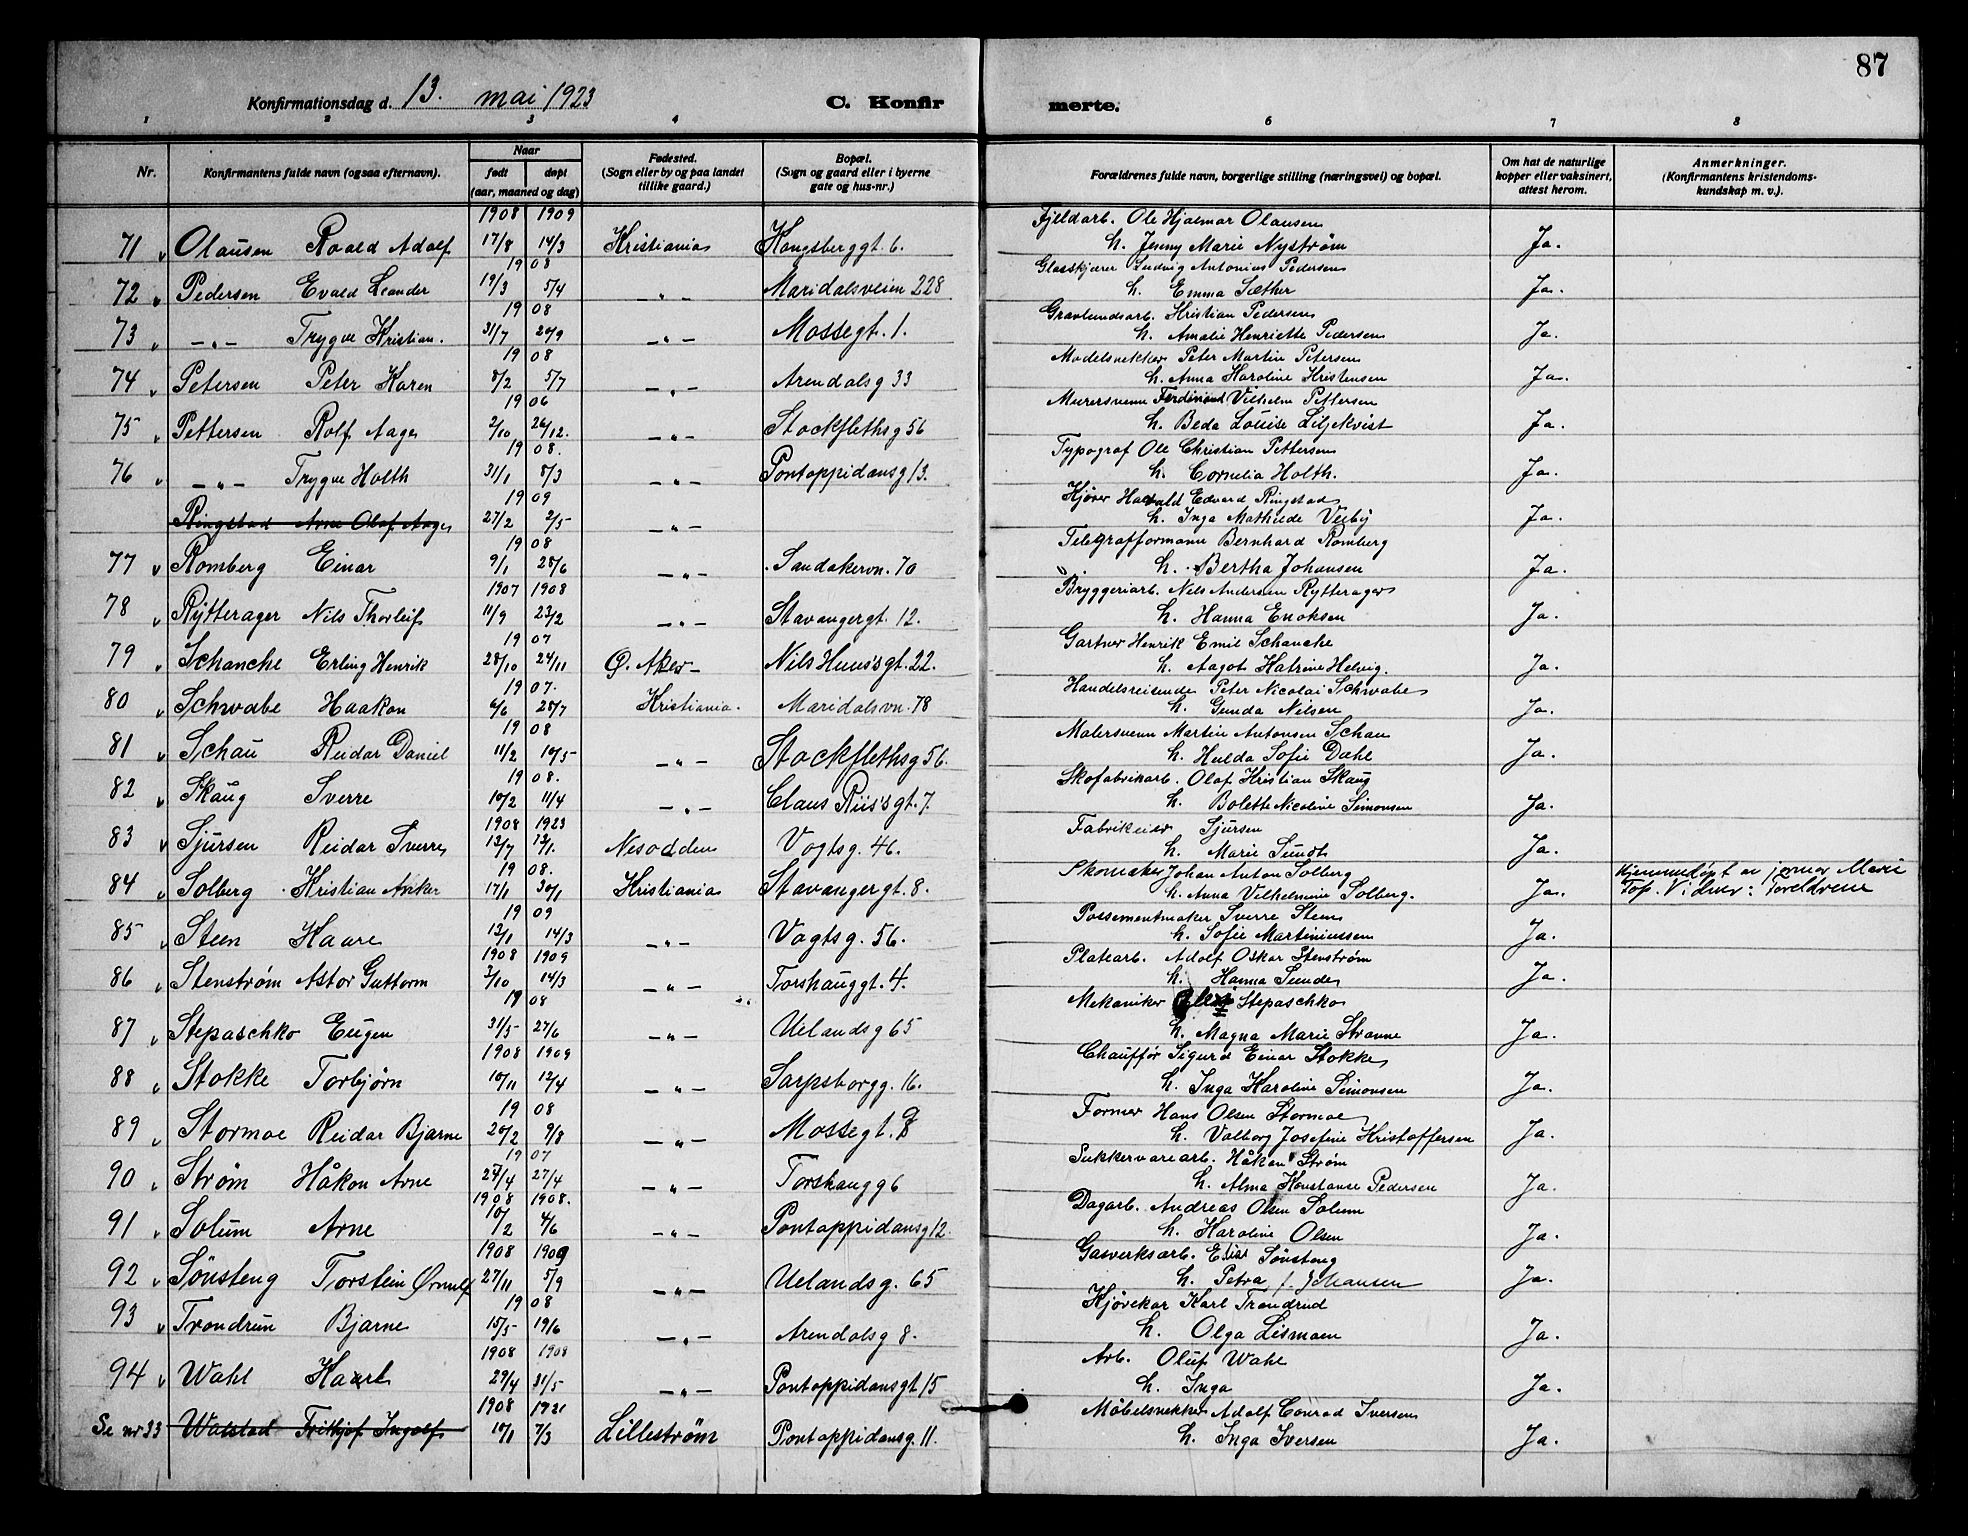 87
Konfirmationsdag d. 13. mai 1923 C. Konfirmerte.
1 2 3 4 6 7 8
Nr. Konfirmantens fulde navn (ogsaa efternavn). Naar født døpt (aar, maaned og dag) Fødested. (Sogn eller by og paa landet tillike gaard.) Bopæl. (Sogn og gaard eller i byerne gate og hus-nr.) Forældrenes fulde navn, borgerlige stilling (næringsvei) og bopæl. Om hat de naturlige kopper eller vaksinert, attest herom. Anmerkninger. (Konfirmantens kristendomskundskap m. v.).
1908 1909 Fjeldarb. Ole Hjalmar Olausen
71 Olausen Roald Adolf 17/8 14/3 Kristiania Kongsberggt. 6. h. Jenny Marie Nystrøm Ja.
19 08 Glasskjærer Ludvig Antonius Pedersen
72 Pedersen Evald Leander 19/3 5/4 -"- Maridalsveien 228 h. Emma Sæther Ja.
19 08 Gravlundsarb. Kristian Pedersen
73 -"- Trygve Kristian. 31/7 20/9 -"- Mossegt. 1. h. Amalie Henriette Pedersen Ja.
19 08 Modelsnekker Peter Martin Petersen
74 Petersen Peter Karen 8/2 5/7 -"- Arendalsg 33 h. Anna Karoline Kristensen Ja.
19 06 Murersvenn Ferdinand Vilhelm Pettersen
75 Pettersen Rolf Aage 2/10 26/12. -"- Stockflethsg 56 h. Beda Louise Liljekvist Ja.
19 08. Typograf Ole Christian Pettersen
76 -"- Trygve Holth 31/1 8/3 -"- Pontoppidansg 13. h. Cornelia Holth. Ja.
19 09 Kjører Harald Edvard Ringstad
Ringstad Arne Olaf Aage 27/2 2/5 -"- h. Inga Mathilde Velby Ja.
19 08 Telegrafformann Bernhard Romberg
77 Romberg Einar 9/1 28/6 -"- Sandakervn. 70 h. Bertha Johansen Ja.
1907 1908 Bryggeriarb. Nils Andersen Rytterager
78 Rytterager Nils Thorleif 11/9 23/2 -"- Stavangergt. 12. h. Hanna Enoksen Ja.
19 07 Gartner Henrik Emil Schanche
79 Schanche Erling Henrik 28/10 24/11 Ø. Aker Nils Huusgt. 22. h. Aagot Katrine Helvig. Ja.
19 07. Handelsreisende Peter Nicolai Schwabe
80 Schwabe Haakon 6/6 28/7 Kristiania. Maridalsvn. 78 h. Gunda Nilsen Ja.
19 08 Malersvenn Martin Antonsen Schau
81 Schau Reidar Daniel 11/2 10/5 -"- Stockflethsg 56. h. Hulda Sofie Dahl Ja.
19 08. Skofabrikarb. Olaf Kristian Skaug
82 Skaug Sverre 10/2 11/4 -"- Claus Riisgt. 7. h. Bolette Nicoline Simonsen Ja.
1908 1923 Fabrikeier Sjursen
83 Sjursen Reidar Sverre 13/7 13/1. Nesodden Vogtsg. 46. h. Marie Sundt Ja.
19 08. Skomaker Johan Anton Solberg Hjemmedøpt av jormor Marie
84 Solberg Kristian Anker 17/1 30/1 Kristiania Stavangergt. 8. h. Anna Vilhelmine Solberg. Ja. Top. Vidner: foreldrene
19 09 Possementmaker Sverre Steen
85 Steen Kaare 13/1 14/3 -"- Vogtsg. 56. h. Sofie Martiniussen Ja.
1908 1909 Platearb. Adolf Oskar Stenstrøm
86 Stenstrøm Astor Guttorm 3/10 14/3 -"- Torshauggt. 4. h. Hanna Sunde Ja.
19 08 Mekaniker Stepaschko
87 Stepaschko Eugen 31/5 27/6 -"- Uelandsg 65 h. Magna Marie Stranne Ja.
1908 1909 Chauffør Sigurd Einar Stokke
88 Stokke Torbjørn 10/11 12/4 -"- Sarpsborgg. 16. h. Inga Karoline Simonsen Ja.
19 08 Former Hans Olsen Stormoe
89 Stormoe Reidar Bjarne 20/2 9/8 -"- Mossegt. 8 h. Valborg Josefine Kristoffersen Ja.
19 07 Sukkervarearb. Håkon Strøm
90 Strøm Håkon Arne 24/4 27/4 -"- Torshaugg 6 h. Alma Konstanse Pedersen Ja.
1908 1908. Dagarb. Andreas Olsen Solum
91 Solum Arne 10/2 4/6 -"- Pontoppidansg 12. h. Karoline Olsen Ja.
1908 1909 Gasverksarb. Sønsteng
92 Sønsteng Torstein Ørnulf 27/11 5/9 -"- Uelandsg. 65 h. Petra f. Johansen Ja.
19 08 Kjørekar Karl Trondrud
93 Trondrun Bjarne 15/5 19/6 -"- Arendalsg 8. h. Olga Lismoen Ja.
1908 1908 Arb. Oluf Wahl
94 Wahl Kaare 29/4 31/5 -"- Pontoppidansgt 15 h. Inga Ja.
1908 1921 Møbelsnekker Adolf Conrad Iversen
Se nr 33 Walstad Frithjof Ingolf 10/1 7/3 Lillestrøm Pontoppidansg. 11. h. Inga Iversen Ja.